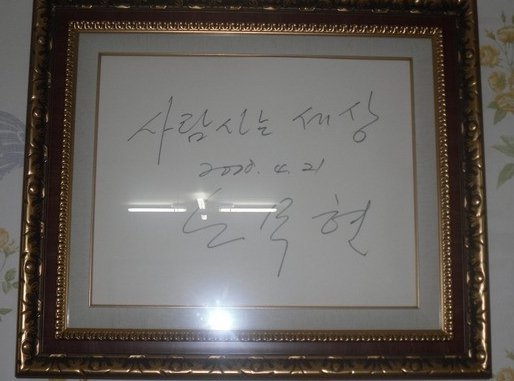 사람사는 세상
2008. 4. 21
노무현